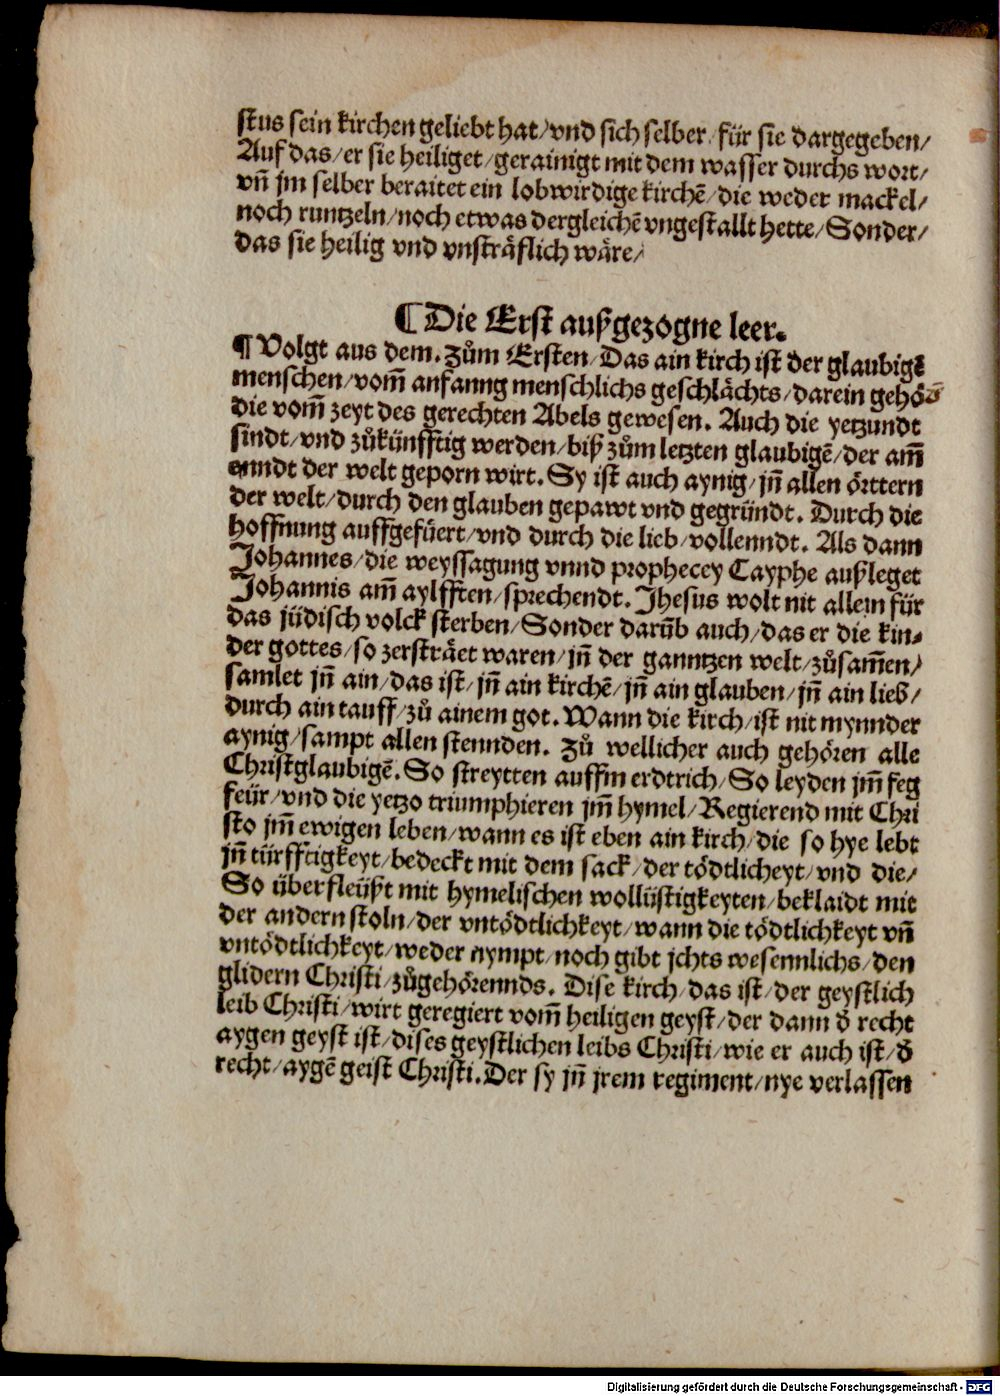 stus sein kirchen geliebt hat/vnd sich selber/für sie dargegeben/
Auf das/er sie heiliget/gerainigt mit dem wasser durchs wort/
vñ jm selber beraitet ein lobwirdige kirchẽ/die weder mackel/
noch runtzeln/noch etwas dergleichẽ vngestallt hette/Sonder/
das sie heilig vnd vnsträflich wäre/
¶ Die Erst außgezogne leer.
¶ Volgt aus dem. Zům Ersten/Das ain kirch ist der glaubigẽ
menschen/vom̃ anfanng menschlichs geschlächts/darein gehörẽ
die vom̃ zeyt des gerechten Abels gewesen. Auch die yetzundt
sindt/vnd zůkünfftig werden/biß zům letzten glaubigẽ/der am̃
enndt der welt geporn wirt. Sy ist auch aynig/jñ allen örttern
der welt/durch den glauben gepawt vnd gegründt. Durch die
hoffnung auffgefüert/vnd durch die lieb/vollenndt. Als dann
Johannes/die weyssagung vnnd prophecey Cayphe außleget
Johannis am̃ aylfften/sprechendt. Jhesus wolt nit allein für
das jüdisch volck sterben/Sonder darũb auch/das er die kin-
der gottes/so zersträet waren/jñ der ganntzen welt/zůsam̃en/
samlet jñ ain/das ist/jñ ain kirchẽ/jñ ain glauben/jñ ain lieb/
durch ain tauff/zů ainem got. Wann die kirch/ist nit mynnder
aynig/sampt allen stennden. Zů wellicher auch gehören alle
Christglaubigẽ. So streytten auffm erdtrich/So leyden jm̃ feg
feür/vnd die yetzo triumphieren jm̃ hymel/Regierend mit Chri
sto jm̃ ewigen leben/wann es ist eben ain kirch/die so hye lebt
jñ türfftigkeyt/bedeckt mit dem sack/der tödtlicheyt/vnd die/
So überfleüßt mit hymelischen wollüstigkeyten/beklaidt mit
der andern stoln/der vntödtlichkeyt/wann die tödtlichkeyt vñ
vntödtlichkeyt/weder nympt/noch gibt jchts wesennlichs/den
glidern Christi/zůgehörennds. Dise kirch/das ist/der geystlich
leib Christi/wirt geregiert vom̃ heiligen geyst/der dann d̕ recht
aygen geyst ist/dises geystlichen leibs Christi/wie er auch ist/d̕
recht/aygẽ geist Christi. Der sy jñ jrem regiment/nye verlassen
Digitalisierung gefördert durch die Deutsche Forschungsgemeinschaft - DFG